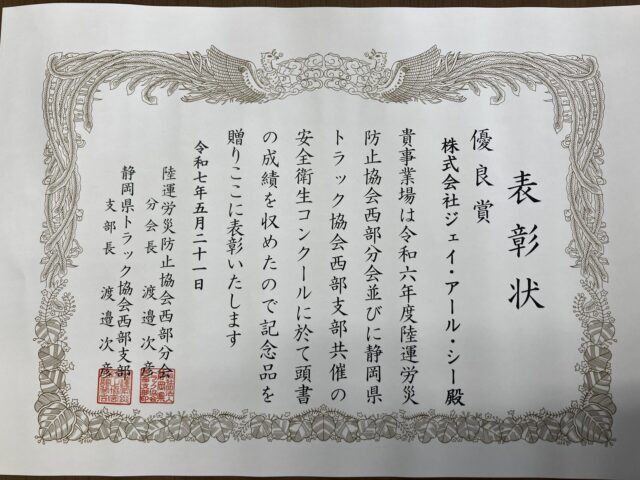 表彰状
優良賞
株式会社ジェイ・アール・シー殿
貴事業場は令和六年度陸運労災
防止協会西部分会並びに静岡県
トラック協会西部支部共催の
安全衛生コンクールに於て頭書
の成績を収めたので記念品を
贈りここに表彰いたします
令和七年五月二十一日
陸運労災防止協会西部分会
分会長 渡邉次彦
静岡県トラック協会西部支部
支部長 渡邉次彦